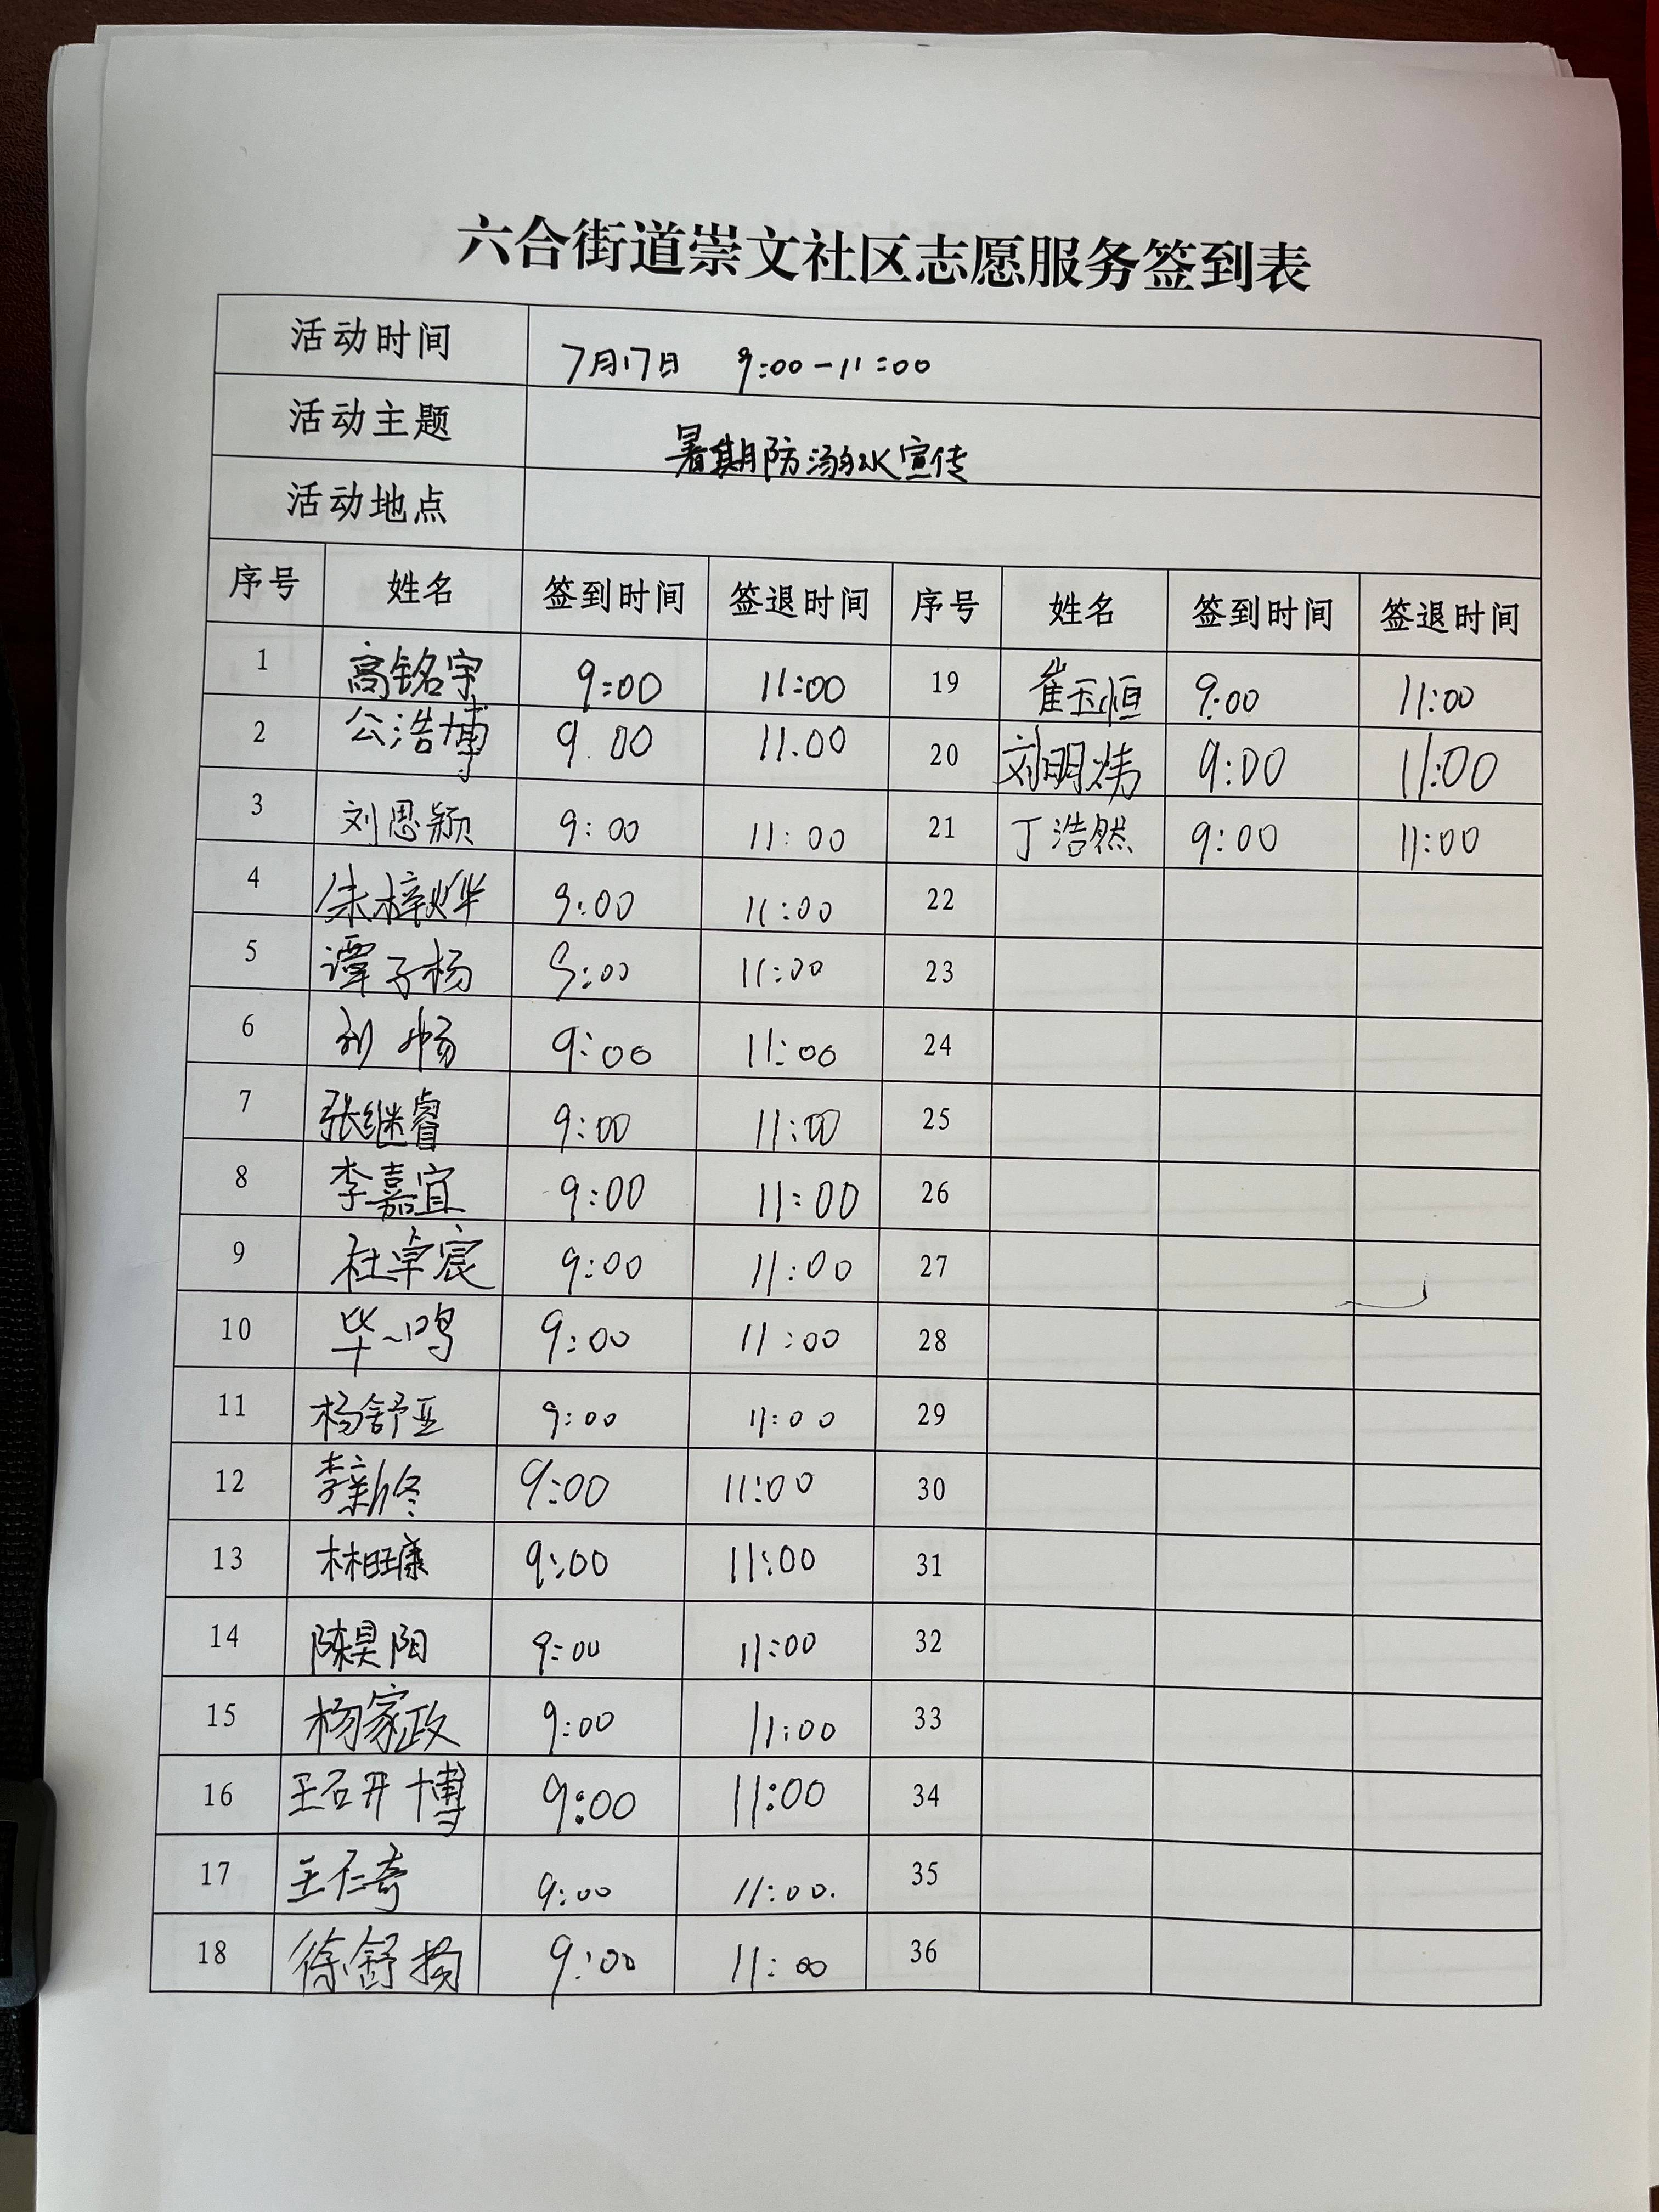 六合街道崇文社区志愿服务签到表
活动时间 7月17日 9:00-11:00
活动主题 暑期防溺水宣传
活动地点
序号 姓名 签到时间 签退时间 序号 姓名 签到时间 签退时间
1 高铭宇 9:00 11:00 19 崔玉恒 9:00 11:00
2 公浩博 9.00 11.00 20 刘明炜 9:00 11:00
3 刘思颖 9:00 11:00 21 丁浩然 9:00 11:00
4 朱梓烨 9:00 11:00 22
5 谭子杨 9:00 11:00 23
6 刘畅 9:00 11:00 24
7 张继睿 9:00 11:00 25
8 李嘉宜 9:00 11:00 26
9 杜卓宸 9:00 11:00 27
10 毕一鸣 9:00 11:00 28
11 杨舒亚 9:00 11:00 29
12 李新冬 9:00 11:00 30
13 林旺康 9:00 11:00 31
14 陈昊阳 9:00 11:00 32
15 杨家政 9:00 11:00 33
16 王石开博 9:00 11:00 34
17 王仁奇 9:00 11:00. 35
18 徐舒扬 9:00 11:00 36